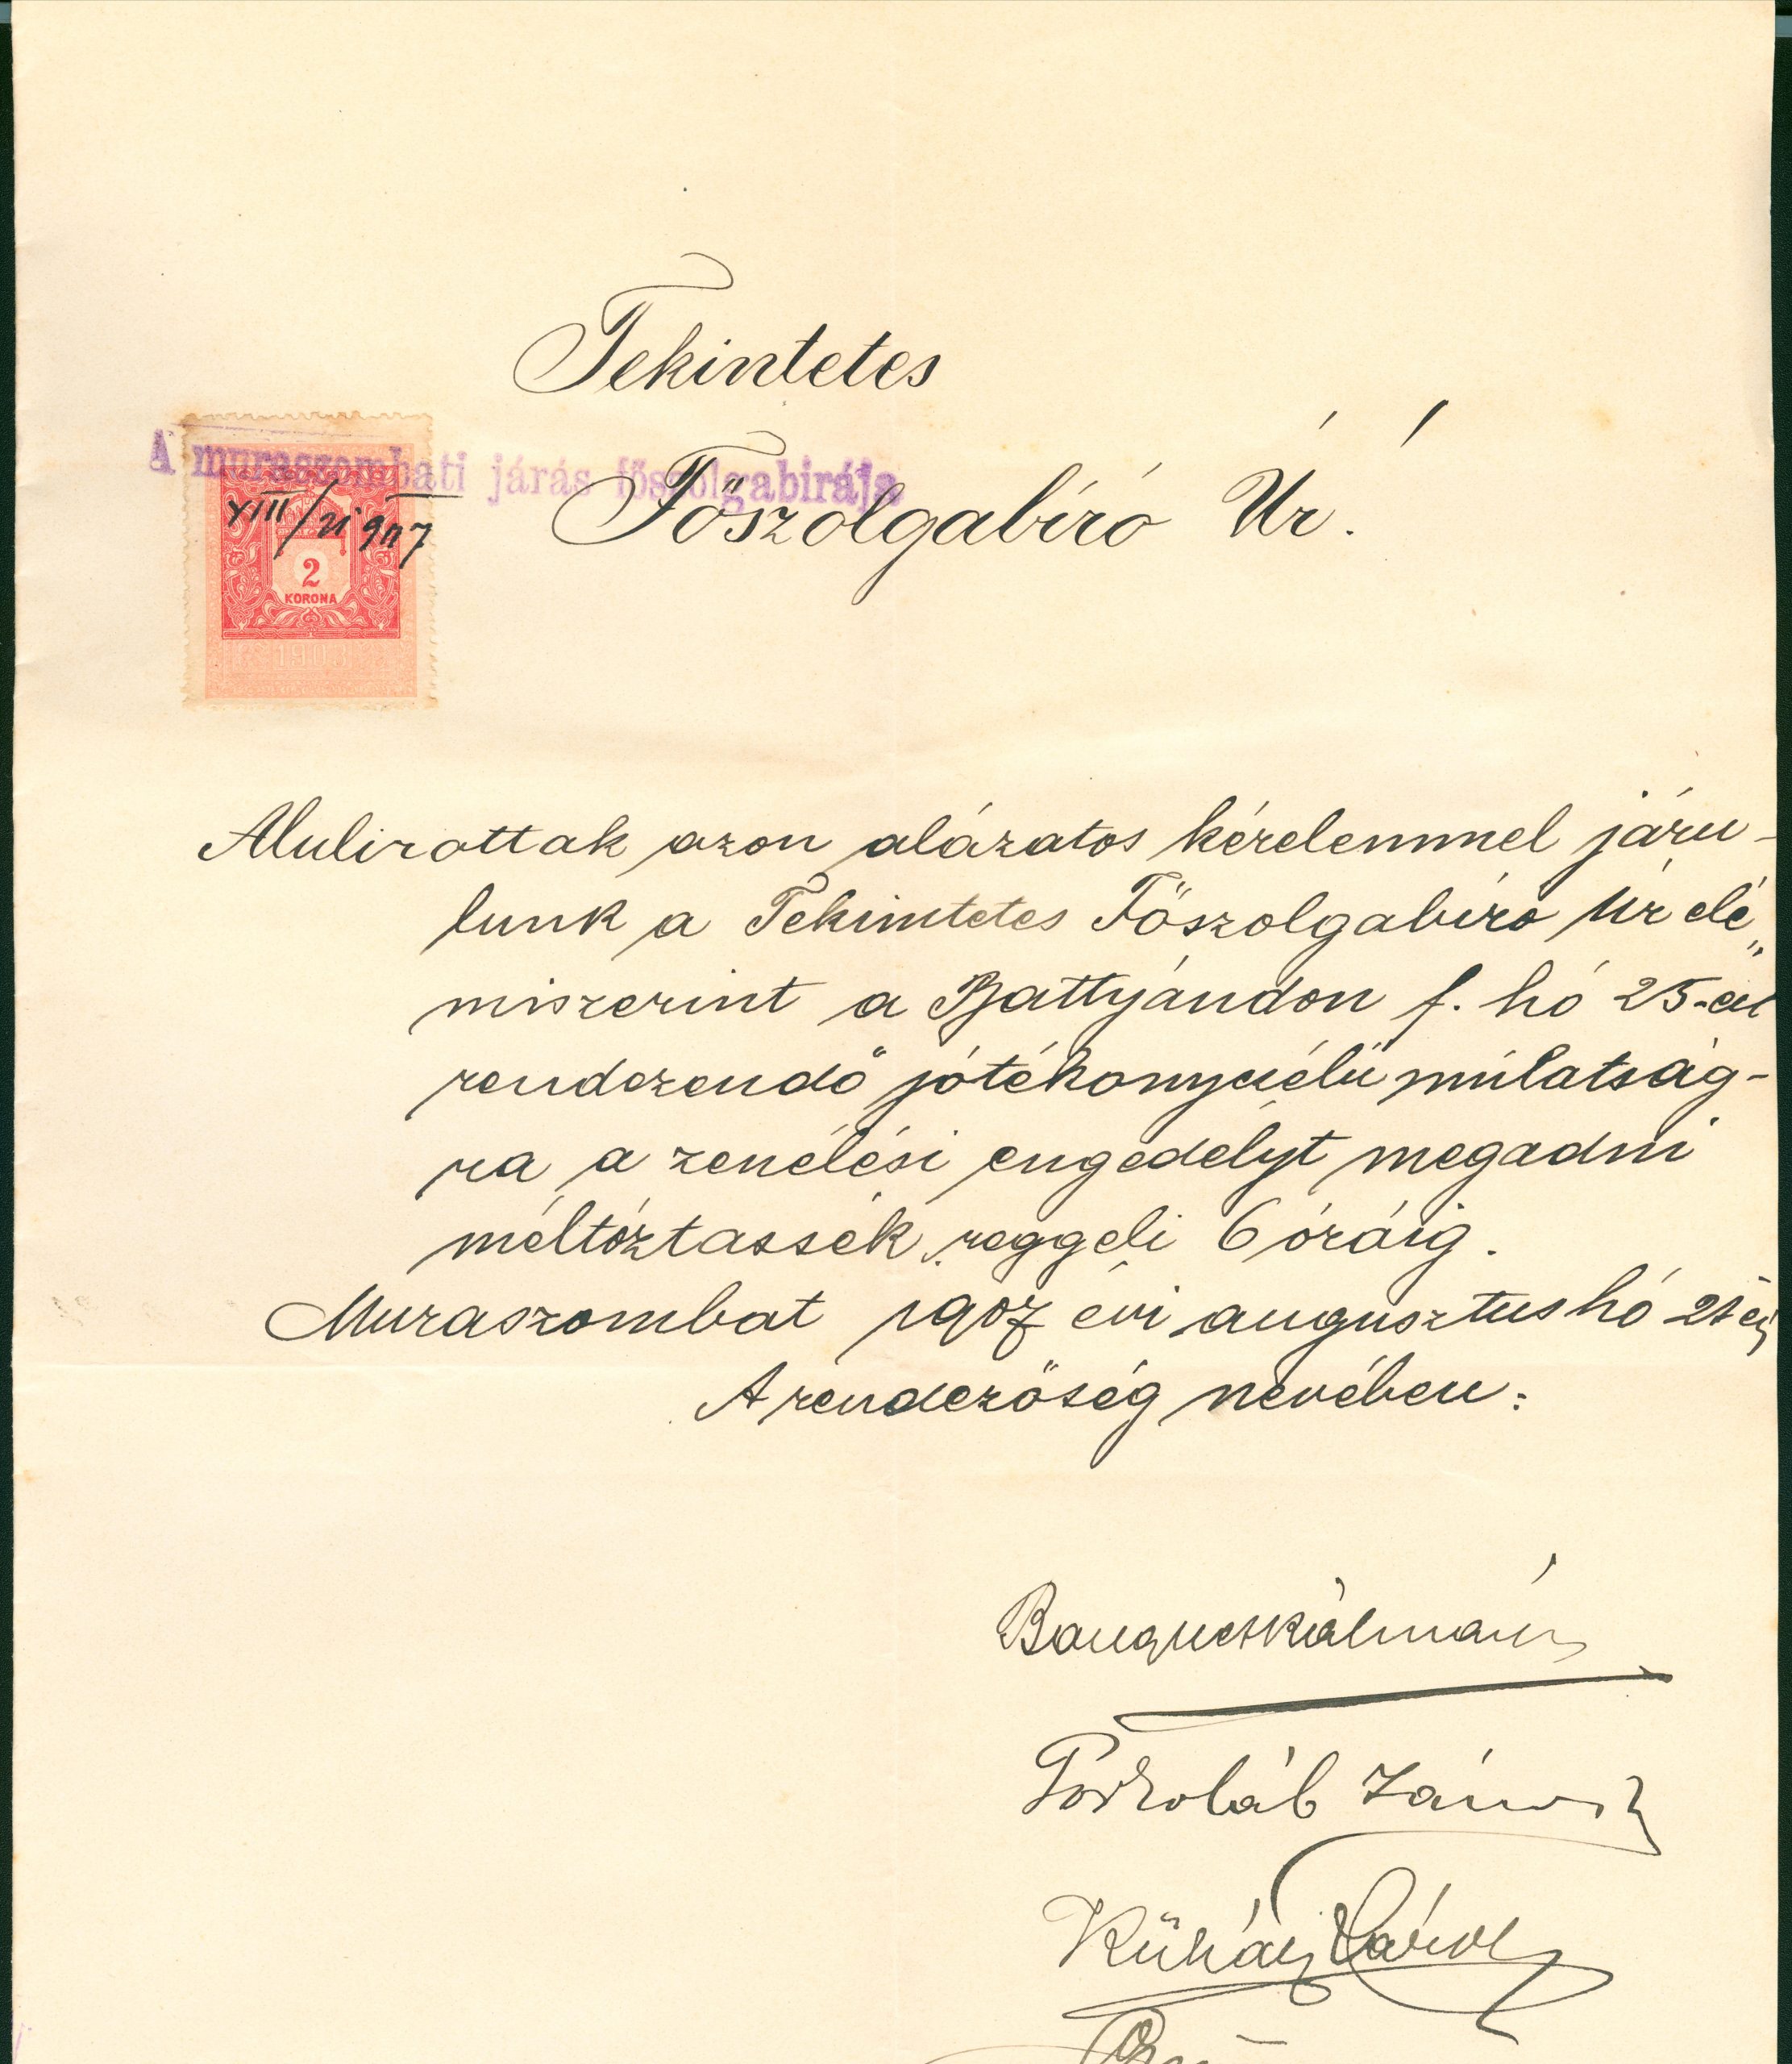 Tekintetes
A muraszombati járás főszolgabirája
Főszolgabíró Úr.
VIII/21 907
2
KORONA
1903
Alulirottak azon alázatos kérelemmel járu-
lunk a Tekintetes Főszolgabíró Úr elé
miszerint a Battyándon f. hó 25-én
rendezendő jótékonycélú múlatság-
ra a zenélési engedélyt megadni
méltóztassék reggeli 6 óráig.
Muraszombat 1907 évi augusztus hó 21 én
A rendezőség nevében:
Kálmán
János
Kühár